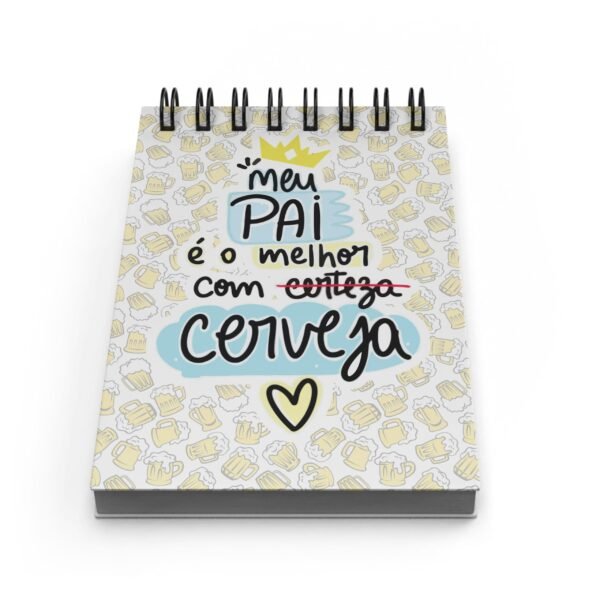 meu
PAI
é o melhor
com certeza
cerveja